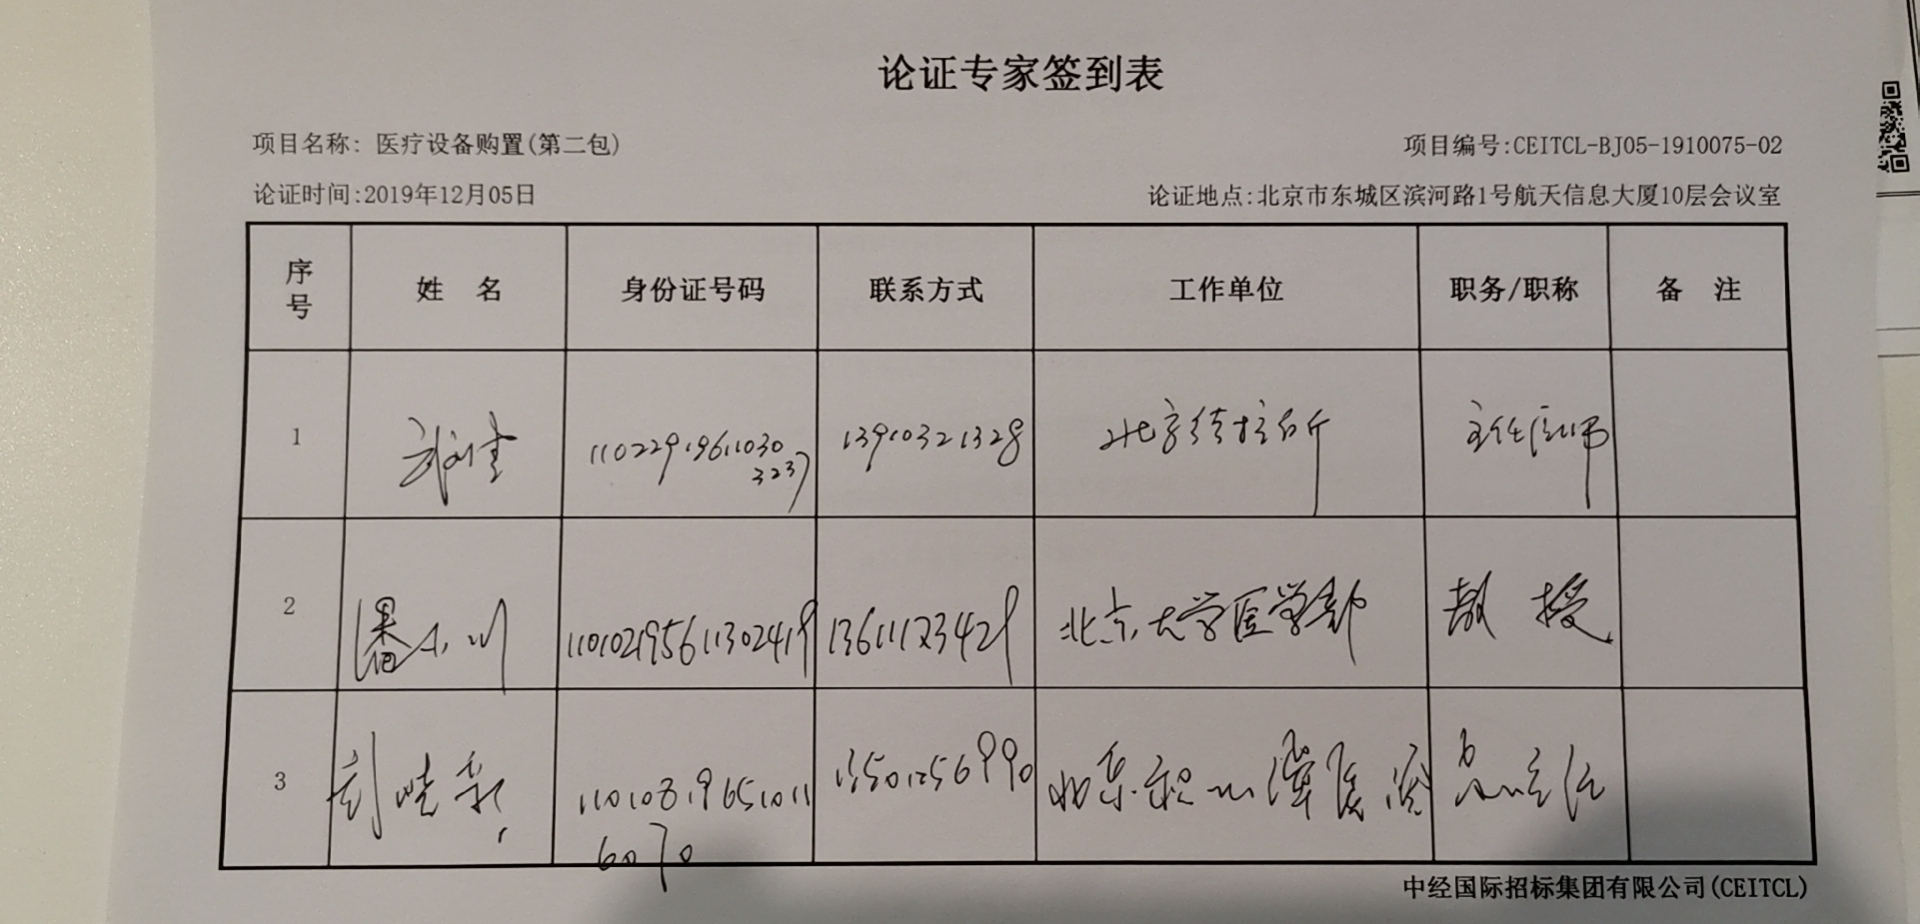 论证专家签到表
项目名称: 医疗设备购置(第二包)
项目编号:CEITCL-BJ05-1910075-02
论证时间:2019年12月05日
论证地点:北京市东城区滨河路1号航天信息大厦10层会议室
序号 姓 名 身份证号码 联系方式 工作单位 职务/职称 备 注
1 110229196110303237 13910321328 主任医师
2 潘小川 110102195611302419 13611123429 北京大学医学部 教授
3 刘晓 110108196510116070 13501256990
中经国际招标集团有限公司(CEITCL)